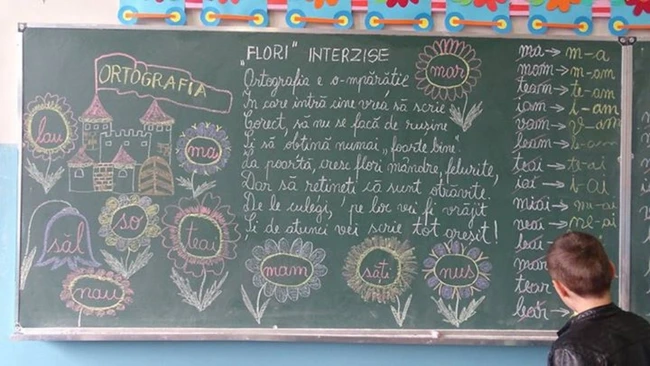 „FLORI" INTERZISE
ORTOGRAFIA
Ortografia e o-mpărăție
În care intră cine vrea să scrie
Corect, să nu se facă de rușine
Și să obțină numai „foarte bine".
La poartă, cresc flori mândre, felurite,
Dar să rețineți că sunt otrăvite.
De le culegi, pe loc vei fi vrăjit
Și de atunci vei scrie tot greșit!
mar
lau
ma
so
teai
săl
nau
mam
săți
nus
ma→ m-a
mam→ m-am
team→ te-am
iam→ i-am
vam→ v-am
leam→ l-am
teai→ te-ai
iai→ i-ai
miai→ mi-ai
neai→ ne-ai
leai
mar
tear
lear